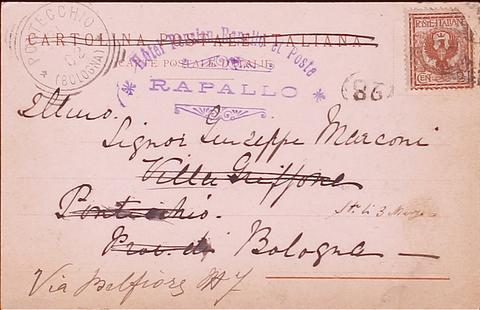 PONTECCHIO
(BOLOGNA)
CARTOLINA POSTALE ITALIANA
CARTE POSTALE D'ITALIE
Hôtel Pension Rapallo et Poste
RAPALLO
POSTE ITALIANE
CEN
86
Illmo.
Signor Giuseppe Marconi
Villa Griffone
Pontecchio.
Prov. di Bologna
Via Belfiore